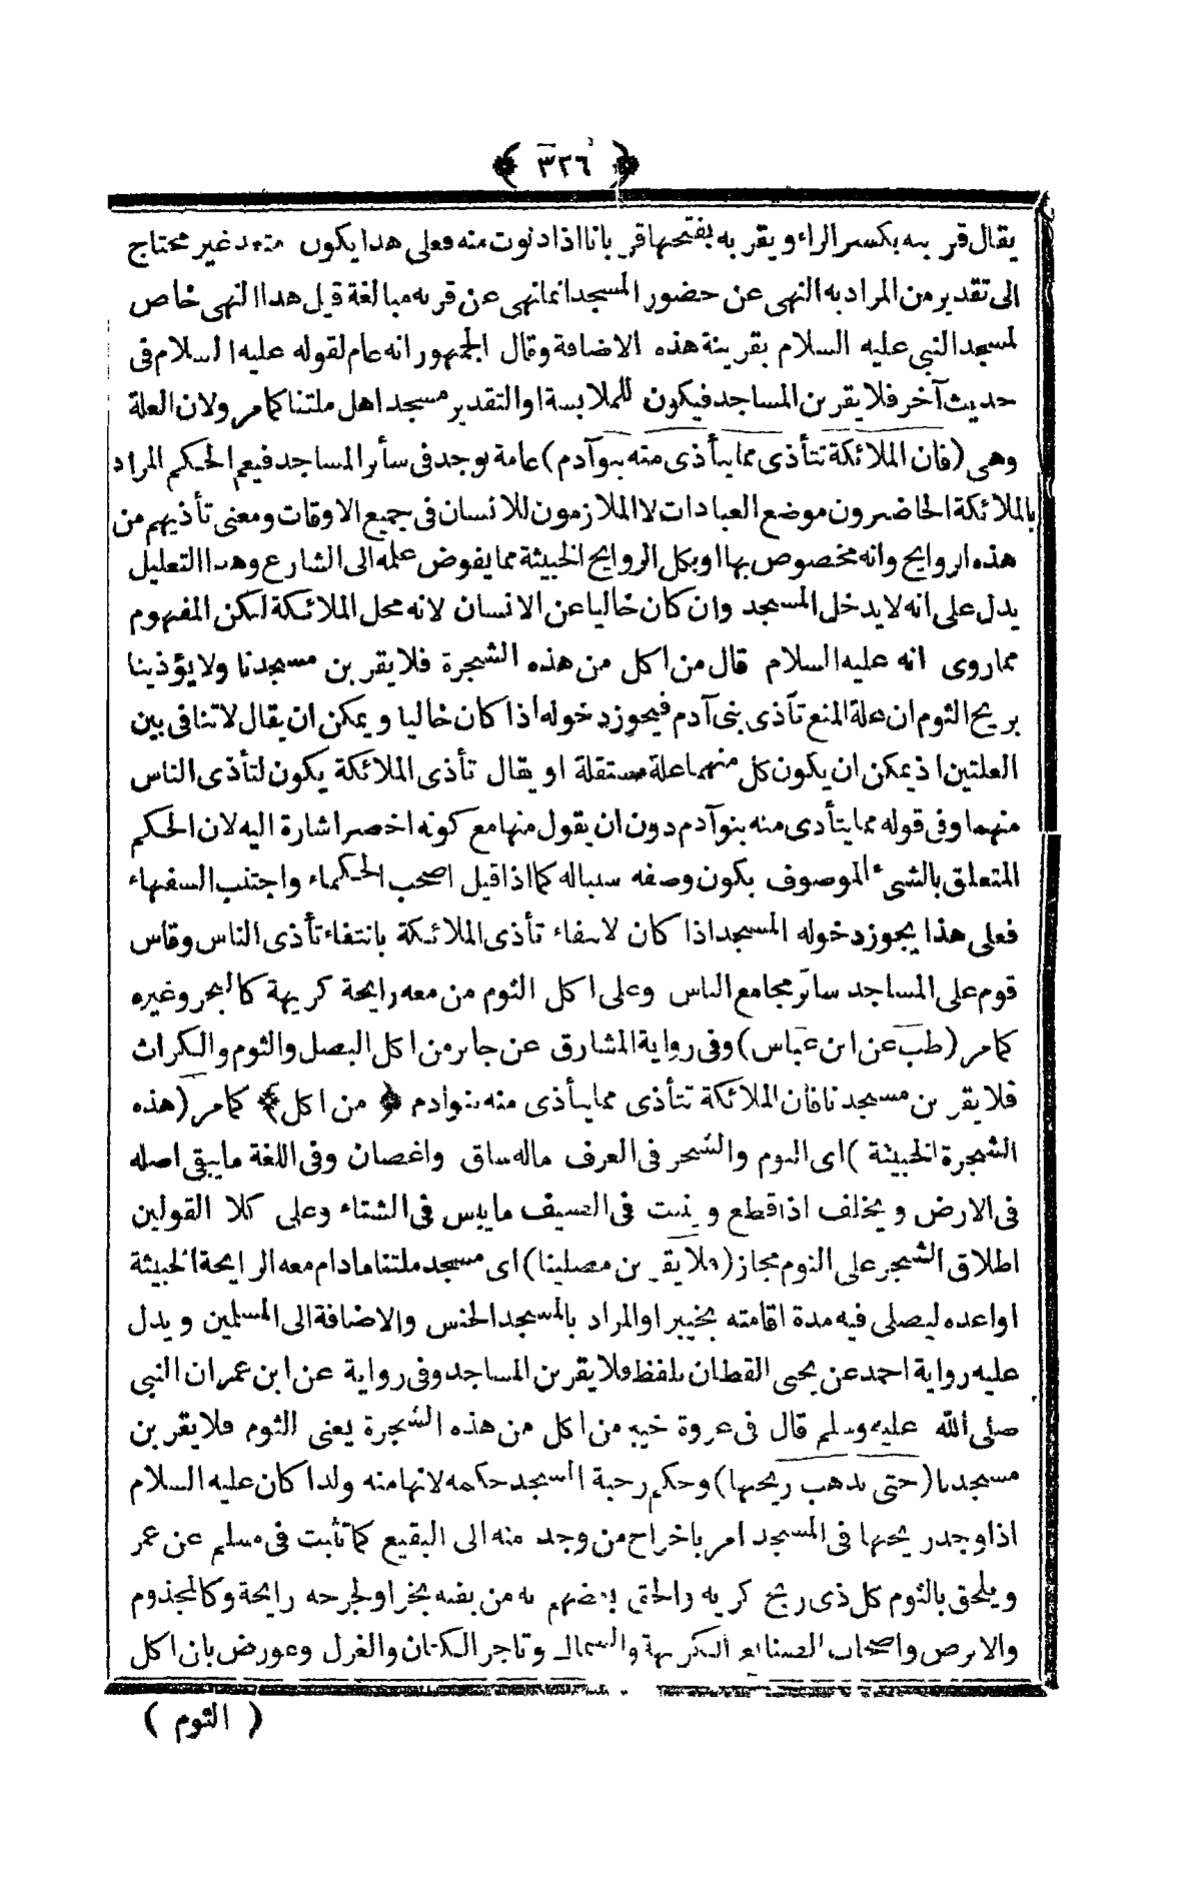 ﴿ ٣٢٦ ﴾
يقال قربه بكسر الراء ويقربه بفتحها قربانا اذا دنوت منه فعلى هذا يكون متعد غير محتاج
الى تقدير من المراد به النهى عن حضور المسجد انما نهى عن قربه مبالغة قيل هذا النهى خاص
لمسجد النبى عليه السلام بقرينة هذه الاضافة وقال الجمهور انه عام لقوله عليه السلام فى
حديث آخر فلا يقربن المساجد فيكون للملابسة او التقدير مسجد اهل ملتنا كما مر ولان العلة
وهى (فان الملائكة تتأذى مما يتأذى منه بنو آدم) عامة توجد فى سأر المساجد فيعم الحكم المراد
بالملائكة الحاضرون موضع العبادات لا الملازمون للانسان فى جميع الاوقات ومعنى تأذيهم من
هذه اروايح وانه مخصوص بها او بكل الروايح الخبيثة مما يفوض علمه الى الشارع وهذا التعليل
يدل على انه لا يدخل المسجد وان كان خاليا عن الانسان لانه محل الملائكة لكن المفهوم
مما روى انه عليه السلام قال من اكل من هذه الشجرة فلا يقربن مسجدنا ولا يؤذينا
بريح الثوم ان علة المنع تأذى بنى آدم فيجوز دخوله اذا كان خاليا ويمكن ان يقال لا تنافى بين
العلتين اذ يمكن ان يكون كل منهما علة مستقلة او يقال تأذى الملائكة يكون لتأذى الناس
منهما وفى قوله مما يتأذى منه بنو آدم دون ان يقول منها مع كونه اخصر اشارة اليه لان الحكم
المتعلق بالشىء الموصوف يكون وصفه سببا له كما اذا قيل اصحب الحكماء واجتنب السفهاء
فعلى هذا يجوز دخوله المسجد اذا كان لانتفاء تأذى الملائكة بانتفاء تأذى الناس وقاس
قوم على المساجد سائر مجامع الناس وعلى اكل الثوم من معه رايحة كريهة كالبخر وغيره
كما مر (طب عن ابن عباس) وفى رواية المشارق عن جابر من اكل البصل والثوم والكراث
فلا يقربن مسجدنا فان الملائكة تتأذى مما يتأذى منه بنوادم ﴿ من اكل ﴾ كما مر (هذه
الشجرة الخبيثة) اى الثوم والشجر فى العرف ماله ساق واغصان وفى اللغة ما يبقى اصله
فى الارض ويخلف اذا قطع وينبت فى الصيف ما يبس فى الشتاء وعلى كلا القولين
اطلاق الشجر على الثوم مجاز (فلا يقربن مصلينا) اى مسجد ملتنا مادام معه الرايحة الخبيثة
او اعده ليصلى فيه مدة اقامته بخيبر او المراد بالمسجد الجنس والاضافة الى المسلمين ويدل
عليه رواية احمد عن يحيى القطان بلفظ فلا يقربن المساجد وفى رواية عن ابن عمر ان النبى
صلى الله عليه وسلم قال فى غزوة خيبر من اكل من هذه الشجرة يعنى الثوم فلا يقربن
مسجدنا (حتى يذهب ريحها) وحكم رحبة المسجد حكمه لانها منه ولذا كان عليه السلام
اذا وجد ريحها فى المسجد امر باخراج من وجد منه الى البقيع كما ثبت فى مسلم عن عمر
ويلحق بالثوم كل ذى ريح كريه والحق بعضهم به من بفيه بخر او لجرحه رايحة وكالمجذوم
والابرص واصحاب الصنايع الكريهة والسماك وتاجر الكتان والغزل وعورض بان اكل
( الثوم )